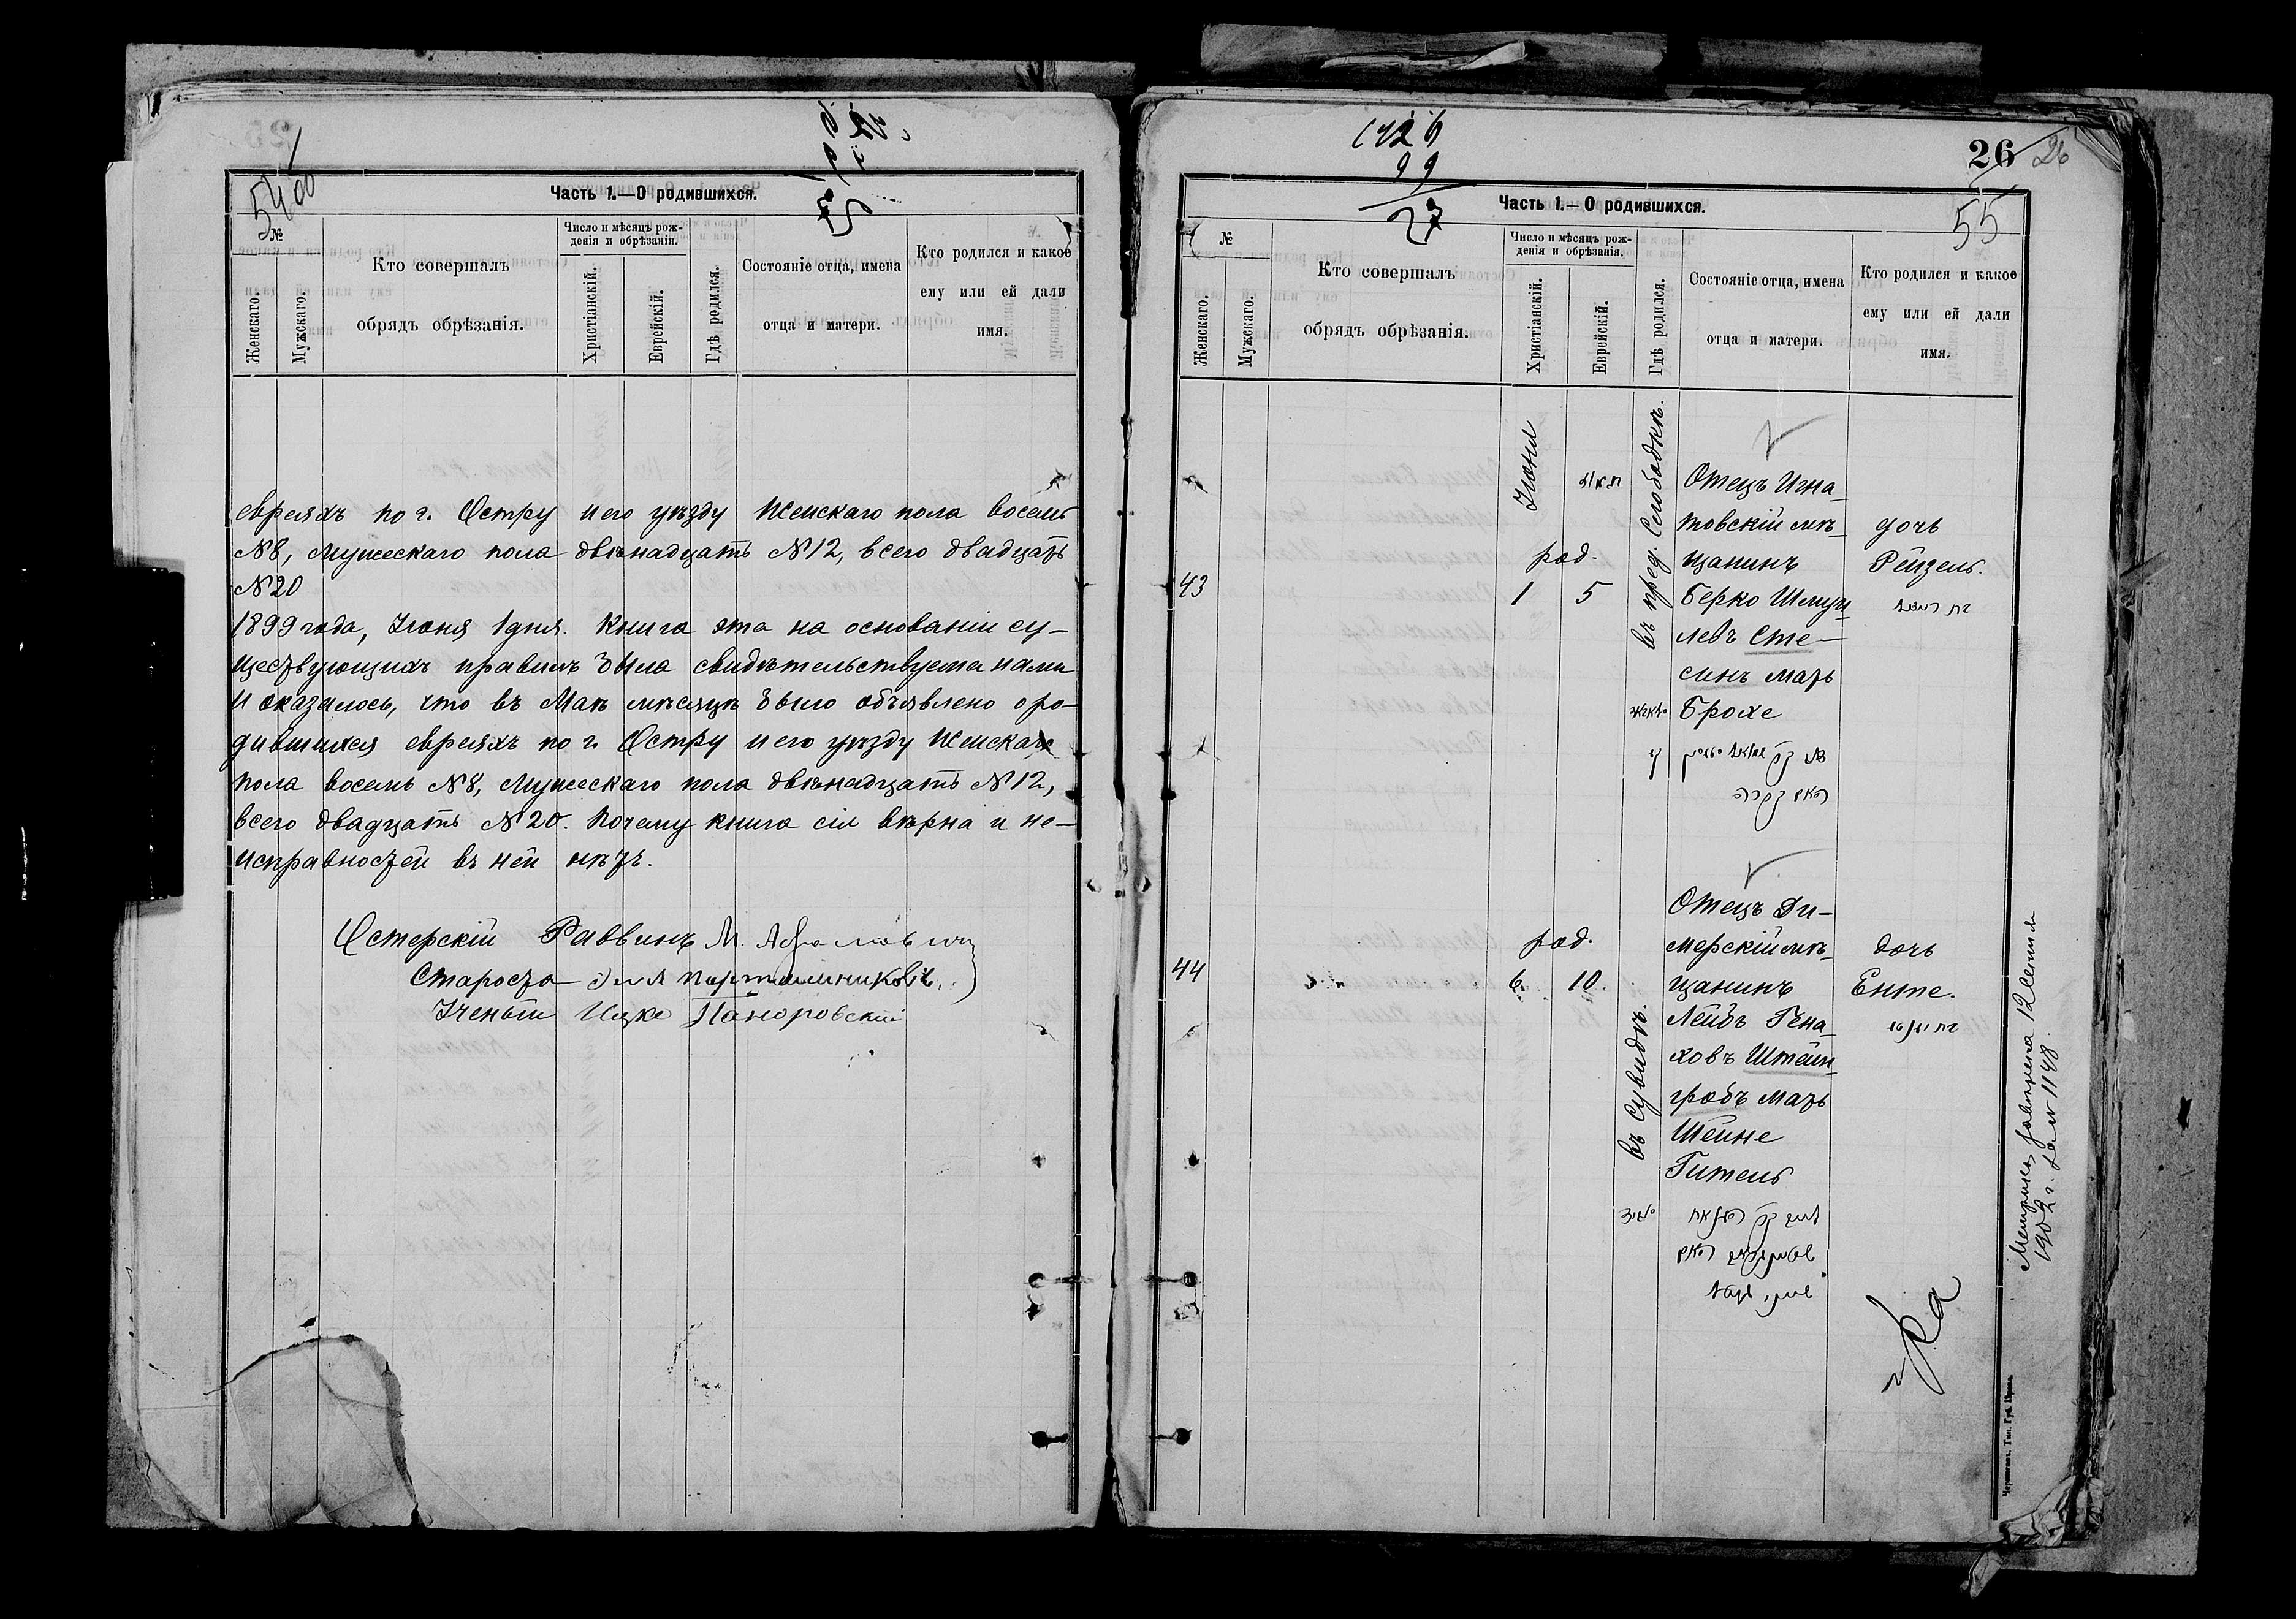 54об
Часть 1.—О родившихся.
№
Женскаго.
Мужскаго.
Кто совершалъ
обрядъ обрѣзанія.
Число и мѣсяцъ рож-
денія и обрѣзанія.
Христіанскій.
Еврейскій.
Гдѣ родился.
Состояніе отца, имена
отца и матери.
Кто родился и какое
ему или ей дали
имя.
евреяхъ по г. Остру и его уѣзду Женскаго пола восемь
№8, мужескаго пола двѣнадцать №12, всего двадцать
№20
1899 года, Іюня 1 дня. Книга эта на основаніи су-
ществующихъ правилъ была свидѣтельствуема нами
и оказалось, что въ Маѣ мѣсяцѣ было объявлено о ро-
дившихся евреяхъ по г. Остру и его уѣзду Женскаго
пола восемь №8, мужескаго пола двѣнадцать №12,
всего двадцать №20. Почему книга сія вѣрна и не-
исправностей въ ней нѣтъ.
Остерскій Раввинъ М. Абрамовичъ
Староста
Ученый Ицко
26
26
55
Часть 1.—О родившихся.
№
Женскаго.
Мужскаго.
Кто совершалъ
обрядъ обрѣзанія.
Число и мѣсяцъ рож-
денія и обрѣзанія.
Христіанскій.
Еврейскій.
Гдѣ родился.
Состояніе отца, имена
отца и матери.
Кто родился и какое
ему или ей дали
имя.
43
Іюня
род.
1
5
въ пред. Слободкѣ.
Отецъ Игна-
товскій мѣ-
щанинъ
Берко Шмуй-
левъ Сте-
синъ мать
Брохе
дочь
Рейзель.
44
род.
6.
10.
въ Сувидѣ.
Отецъ Ди-
мерскій мѣ-
щанинъ
Лейбъ Гена-
ховъ Штейн-
гробъ мать
Шейне
Гитель
дочь
Енте.
1902 г. за № 1148
Черниговъ. Тип. Губ. Правл.